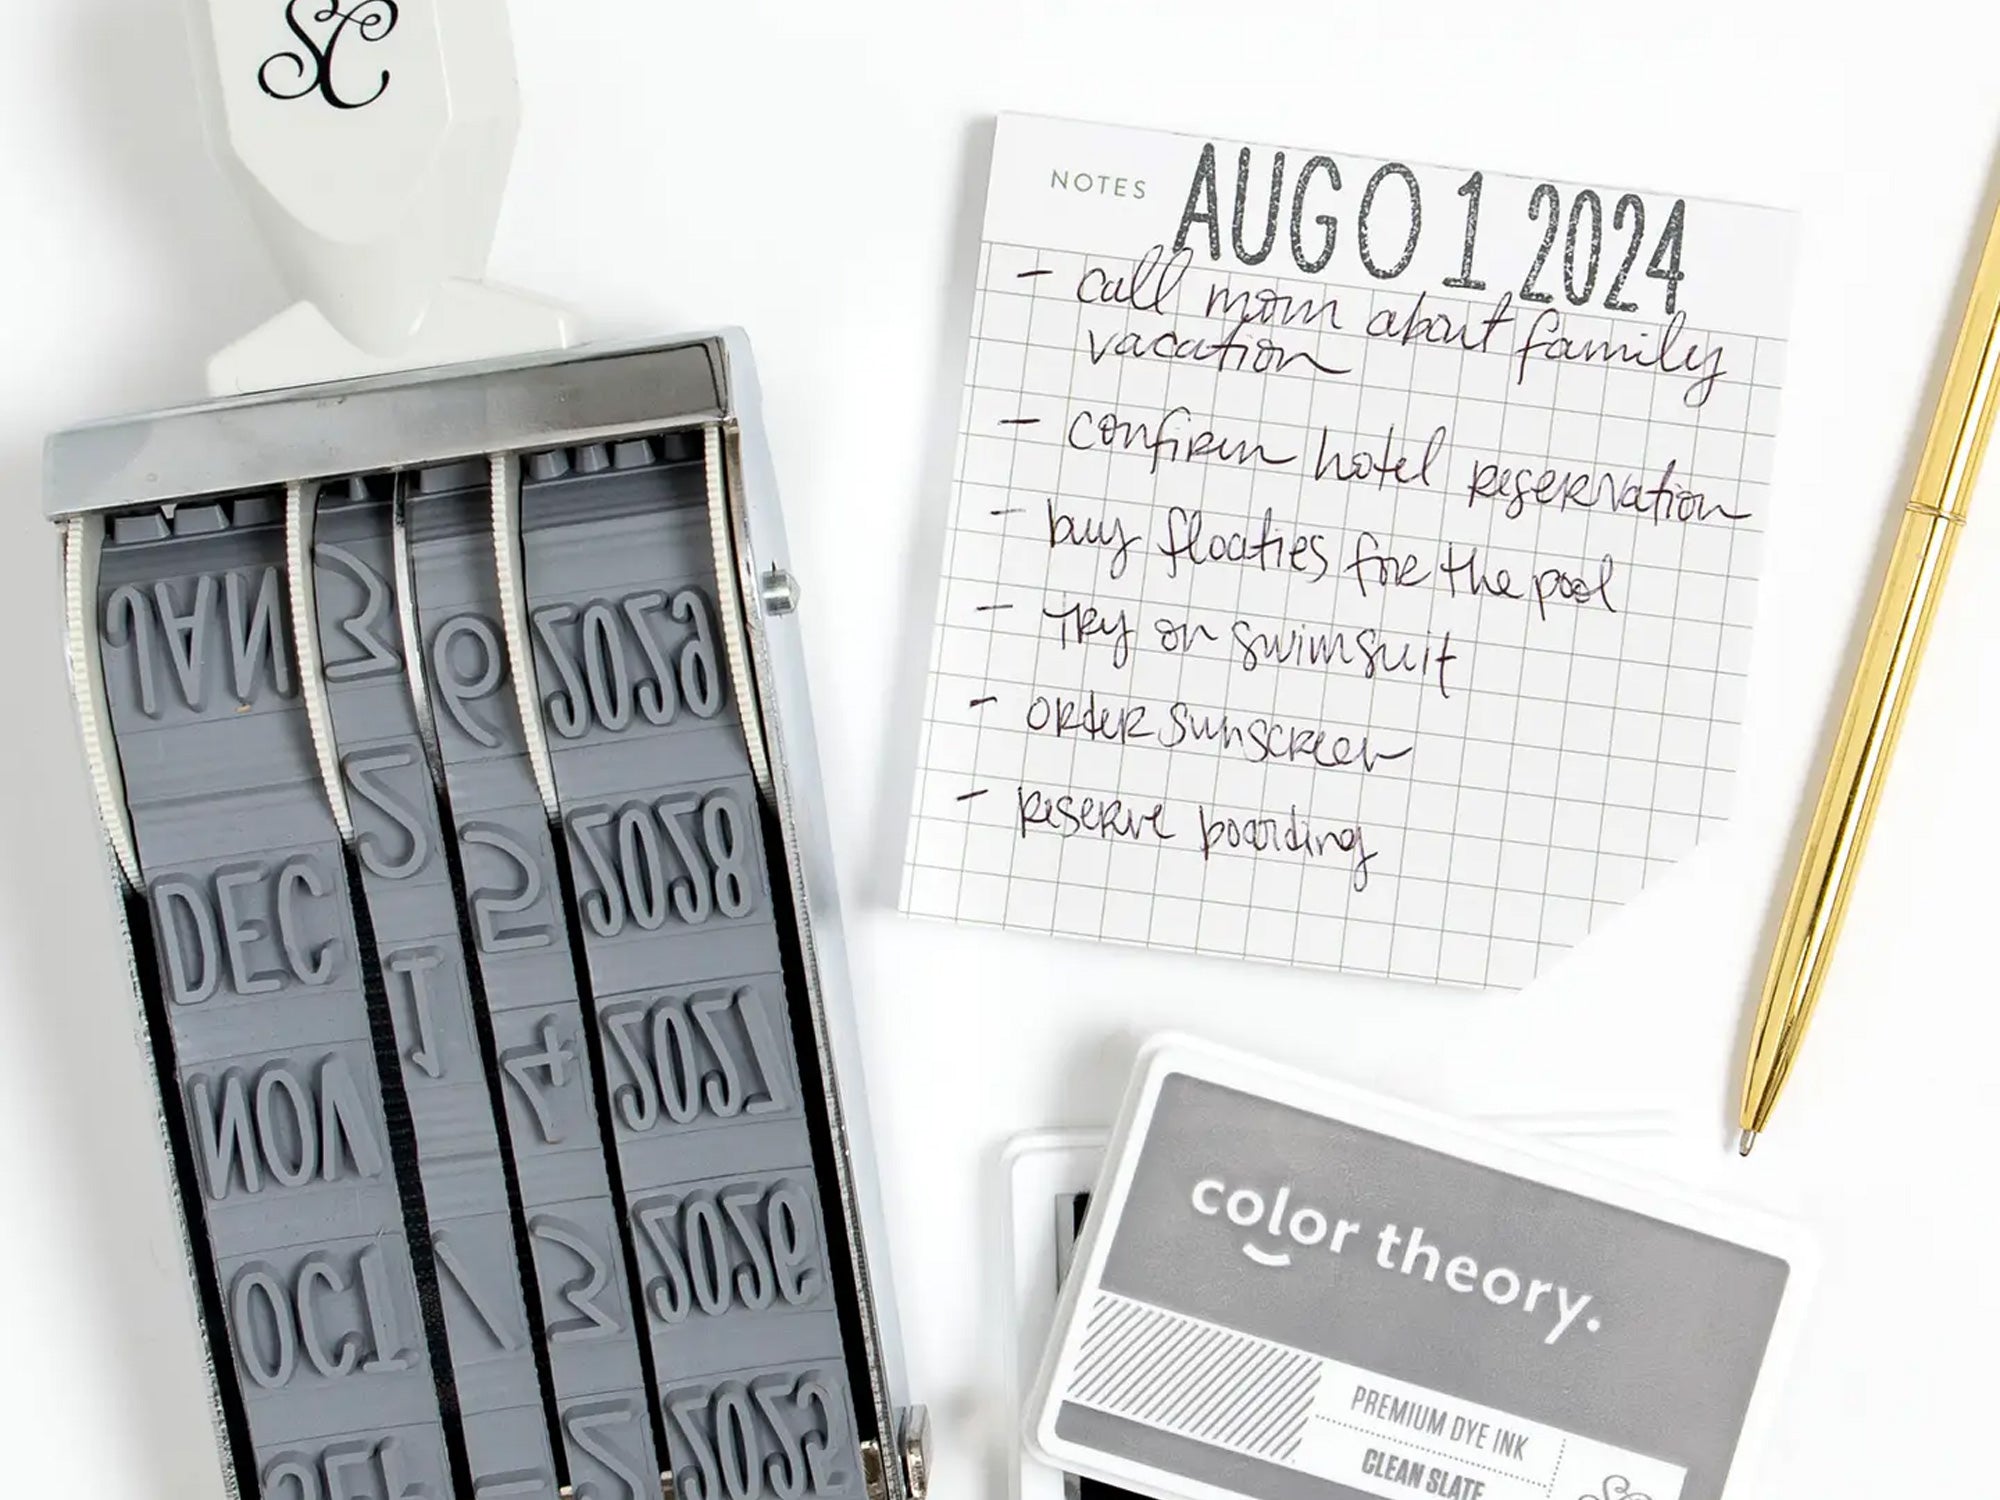 SC
NOTES
AUG 01 2024
- call mom about family
vacation
- confirm hotel reservation
- buy floaties for the pool
- try on swimsuit
- order sunscreen
- reserve boarding
JAN 3 6 2029
DEC 2 5 2028
NOV 1 4 2027
OCT / 3 2026
SEP 2 2025
color theory.
PREMIUM DYE INK
CLEAN SLATE